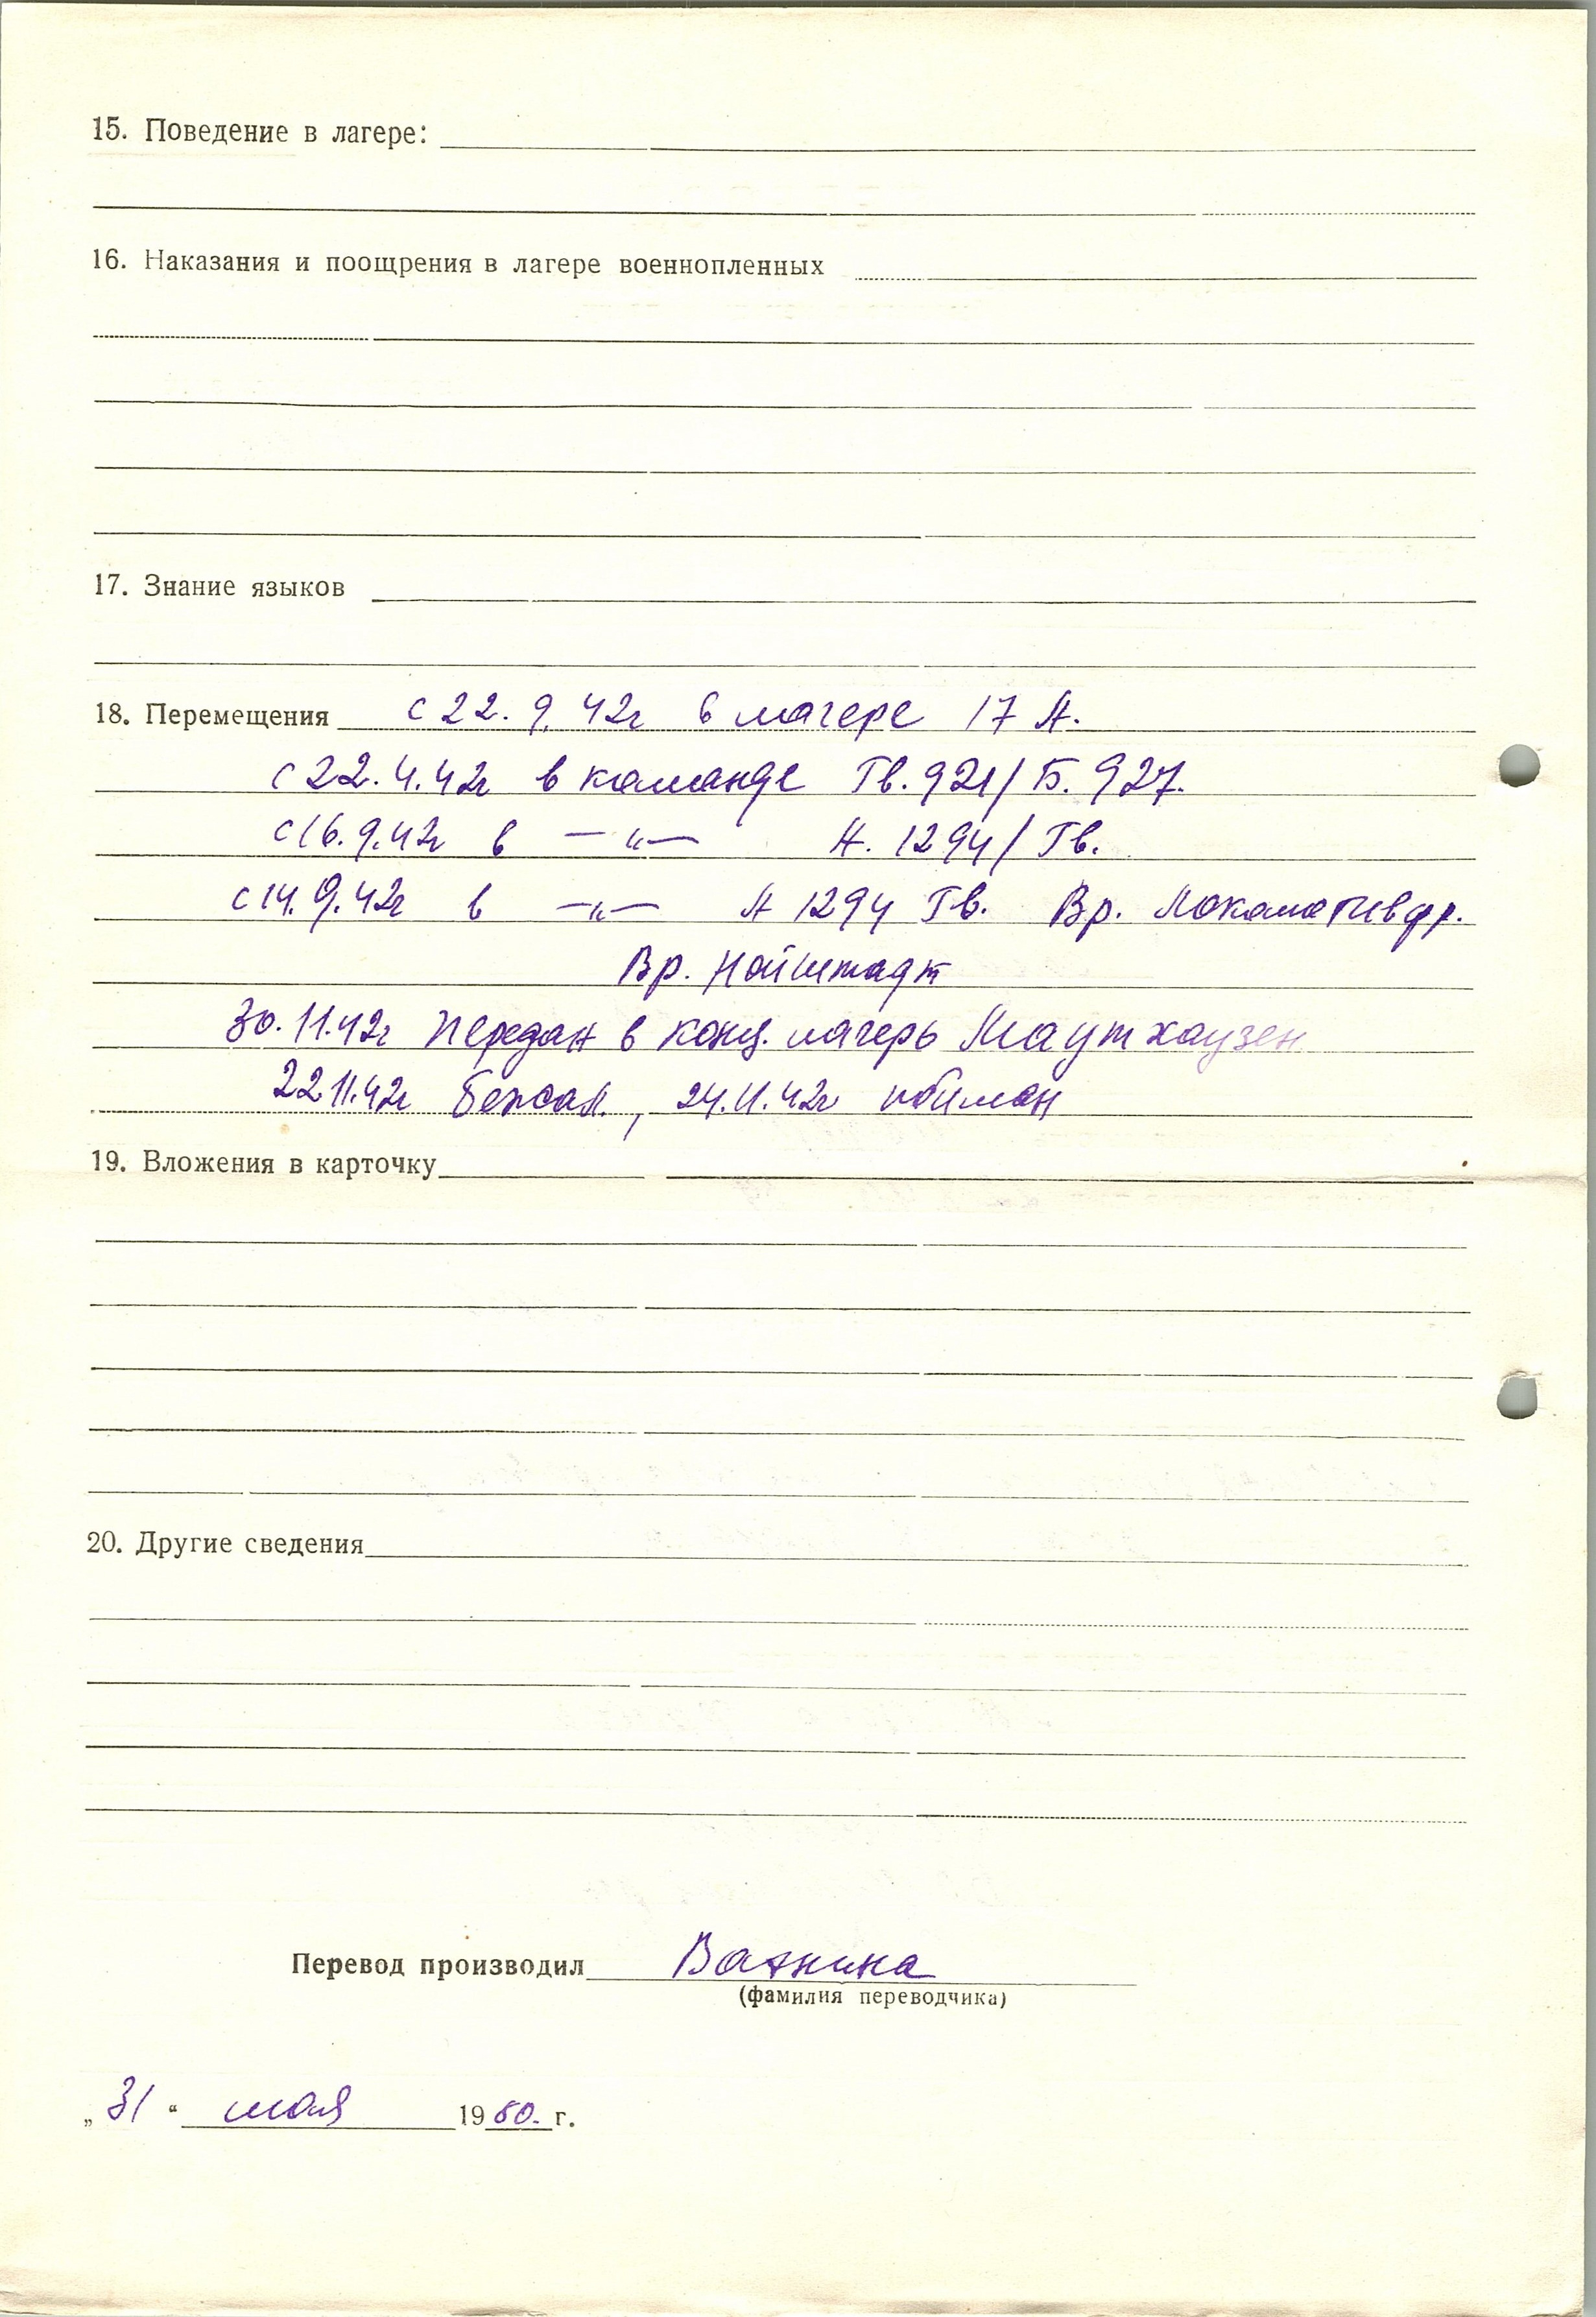 15. Поведение в лагере:
16. Наказания и поощрения в лагере военнопленных
17. Знание языков
18. Перемещения с 22. 9. 42г в лагере 17 А.
с 22.4.42г в команде Гв. 921/Б. 927.
с 16.9.42г в —"— А. 1294/Гв.
с 14.9.42г в —"— А 1294 Гв. Вр. Локомотивфр.
Вр. Нойштадт
30.11.42г Передан в конц. лагерь Маутхаузен
22.11.42г бежал, 24.11.42г пойман
19. Вложения в карточку
20. Другие сведения
Перевод производил
(фамилия переводчика)
„ 31 “ мая 19 г.